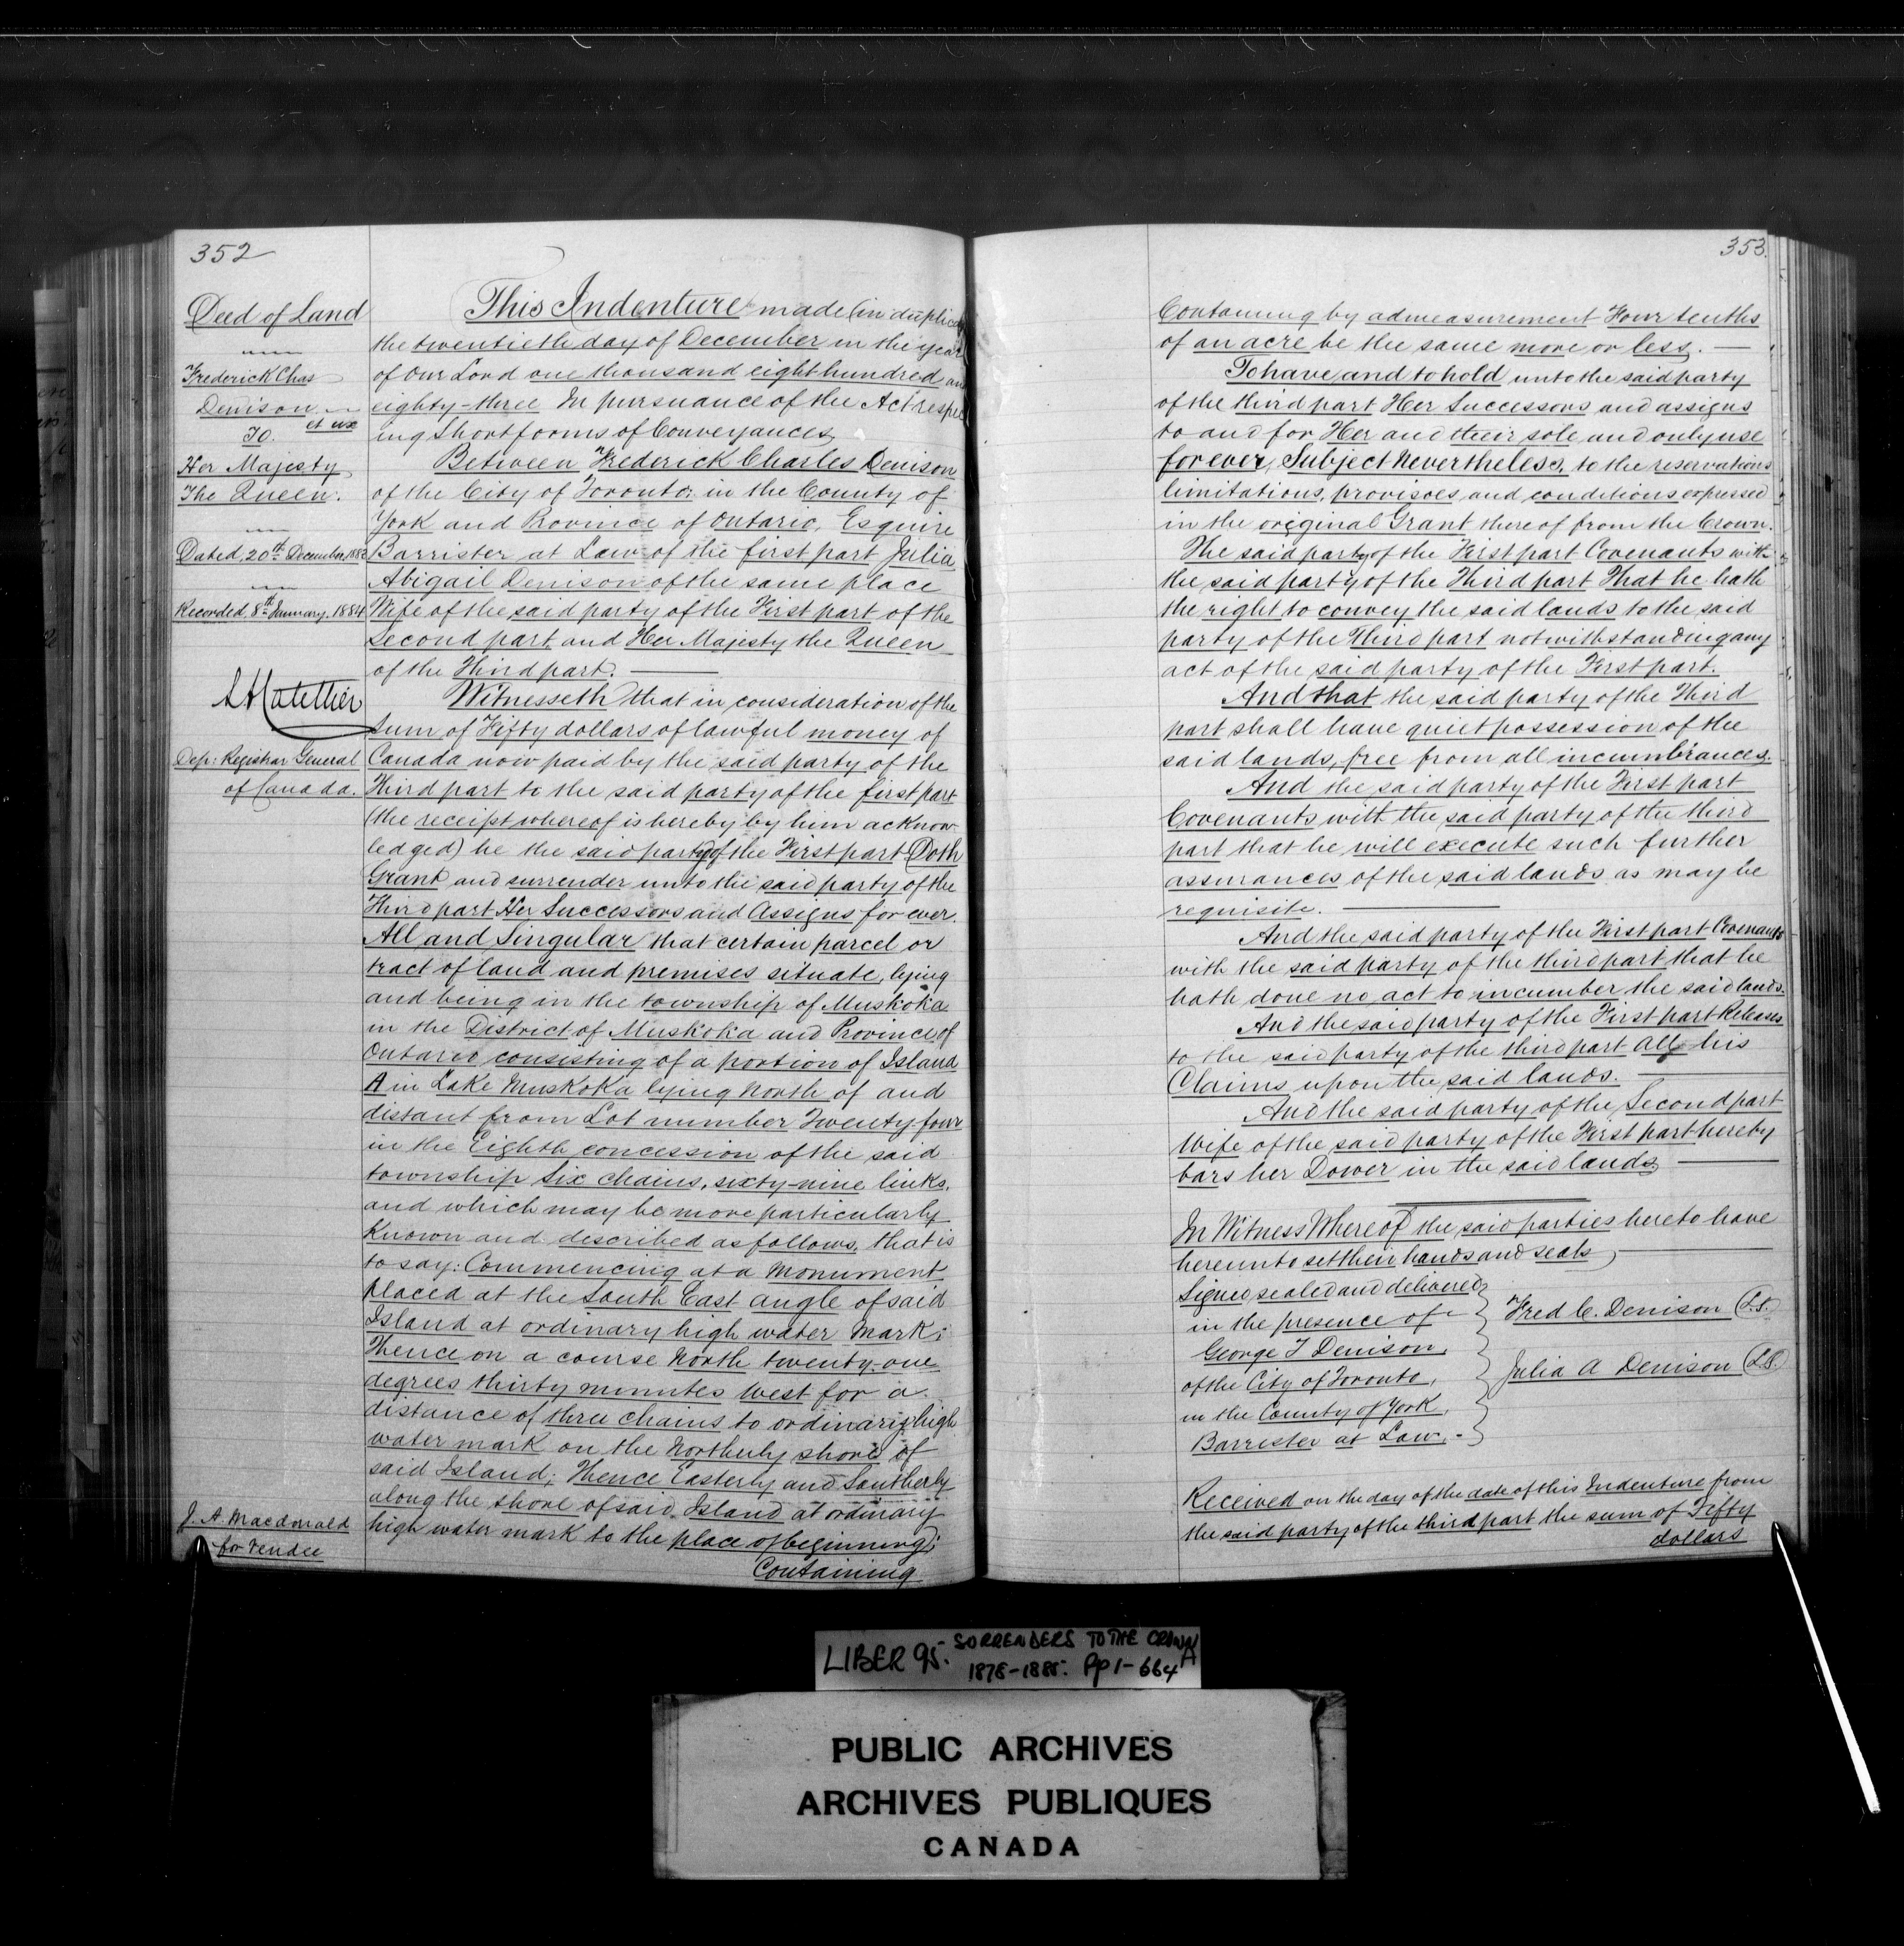 352
Deed of Land
Frederick Chas
Denison
et ux
To.
Her Majesty
The Queen.
Dated 20th December 1883
Recorded 8th January. 1884
Dep: Registrar General
of Canada.
J. A. Macdonald
for vendee
This Indenture made (in duplica
the twentieth day of December in the year
of Our Lord one thousand eight hundred an
eighty-three In pursuance of the Act respec
ing Short forms of Conveyances
Between Frederick Charles Denison
of the City of Toronto; in the County of
York and Province of Ontario, Esquire
Barrister at Law of the first part Julia
Abigail Denison of the same place
Wife of the said party of the First part of the
Second part, and Her Majesty the Queen
of the Third part.
Witnesseth that in consideration of the
Sum of Fifty dollars of lawful money of
Canada now paid by the said party of the
Third part to the said party of the first part
(the receipt whereof is hereby by him acknow-
ledged) he the said party of the First part Doth
Grant and surrender unto the said party of the
Third part Her Successors and Assigns for ever.
All and Singular that certain parcel or
tract of land and premises situate, lying
and being in the township of Muskoka
in the District of Muskoka and Province of
Ontario consisting of a portion of Island
A in Lake Muskoka lying North of and
distant from Lot number Twenty four
in the Eighth concession of the said
township Six chains, sixty-nine links,
and which may be more particularly
Known and described as follows, that is
to say: Commencing at a Monument
placed at the South East angle of said
Island at ordinary high water Mark;
Thence on a course North twenty-one
degrees thirty minutes West for a
distance of three chains to ordinary high
water mark on the Northerly shore of
said Island; Thence Easterly and Southerly
along the shore of said Island at ordinary
high water mark to the place of beginning;
Containing
353.
Containing by admeasurement Four tenths
of an acre be the same more or less.
To have and to hold unto the said party
of the third part Her Successors and assigns
to and for Her and their sole and only use
forever, Subject Nevertheless, to the reservations
limitations, provisoes and conditions expressed
in the original Grant thereof from the Crown.
The said party of the First part Covenants with
the said party of the Third part That he hath
the right to convey the said lands to the said
party of the Third part notwithstanding any
act of the said party of the First part.
And that the said party of the Third
part shall have quiet possession of the
said lands, free from all incumbrances.
And the said party of the First part
Covenants with the said party of the third
part that he will execute such further
assurances of the said lands as may be
requisite.
And the said party of the First part Covenants
with the said party of the third part that he
hath done no act to incumber the said lands.
And the said party of the First part Releases
to the said party of the third part All his
Claims upon the said lands.
And the said party of the Second part
Wife of the said party of the First part hereby
bars her Dower in the said lands
In Witness Whereof the said parties hereto have
hereunto set their hands and seals,
Signed sealed and delivered
in the presence of
George T Denison,
of the City of Toronto,
in the County of York,
Barrister at Law.
Fred C. Denison (L.S.)
Julia A Denison (L.S.)
Received on the day of the date of this Indenture from
the said party of the third part the sum of Fifty
dollars
LIBER 95. SORRENDERS TO THE CROWN
1878-1885. Pp 1-664A
PUBLIC ARCHIVES
ARCHIVES PUBLIQUES
CANADA